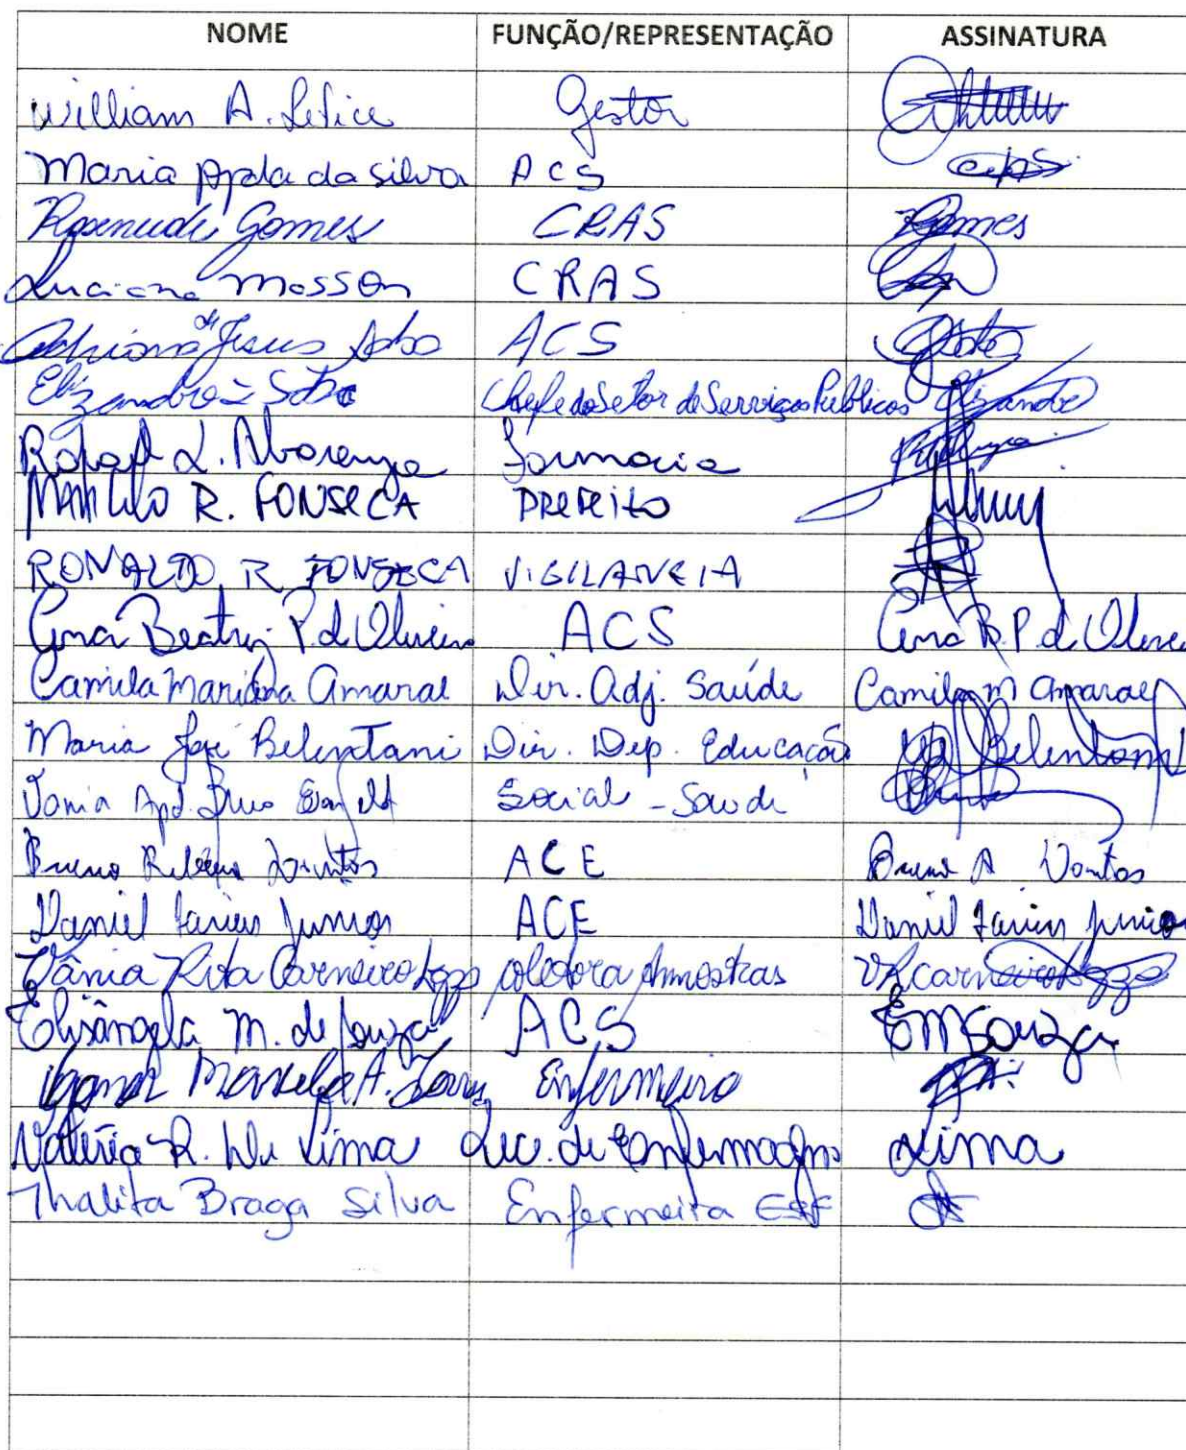 NOME FUNÇÃO/REPRESENTAÇÃO ASSINATURA
William A. Gestor
Maria Apda da Silva ACS
Gomes CRAS Gomes
Luciana Masson CRAS
Adriana de Jesus ACS
Chefe do Setor de Serviços Públicos
Rafael L. Alvarenga Farmacia
R. FONSECA PREFEITO
RONALDO R FONSECA VIGILANCIA
Ana Beatriz P. de Oliveira ACS Ana B. P. de Oliveira
Camila Mariana Amaral Dir. Adj. Saúde Camila M Amaral
Maria José Belentani Dir. Dep. Educação Belentani
Vania Apd. Social - Saude
Bruno Ribeiro ACE Bruno
Daniel Farias Junior ACE Daniel Farias Junior
Vânia Rita Carneiro coletora Amostras VRCarneiro
Elisângela M. de Souza ACS EMSouza
A. Enfermeiro
Valéria R. De Lima Tec. de Enfermagem Lima
Thalita Braga Silva Enfermeira ESF